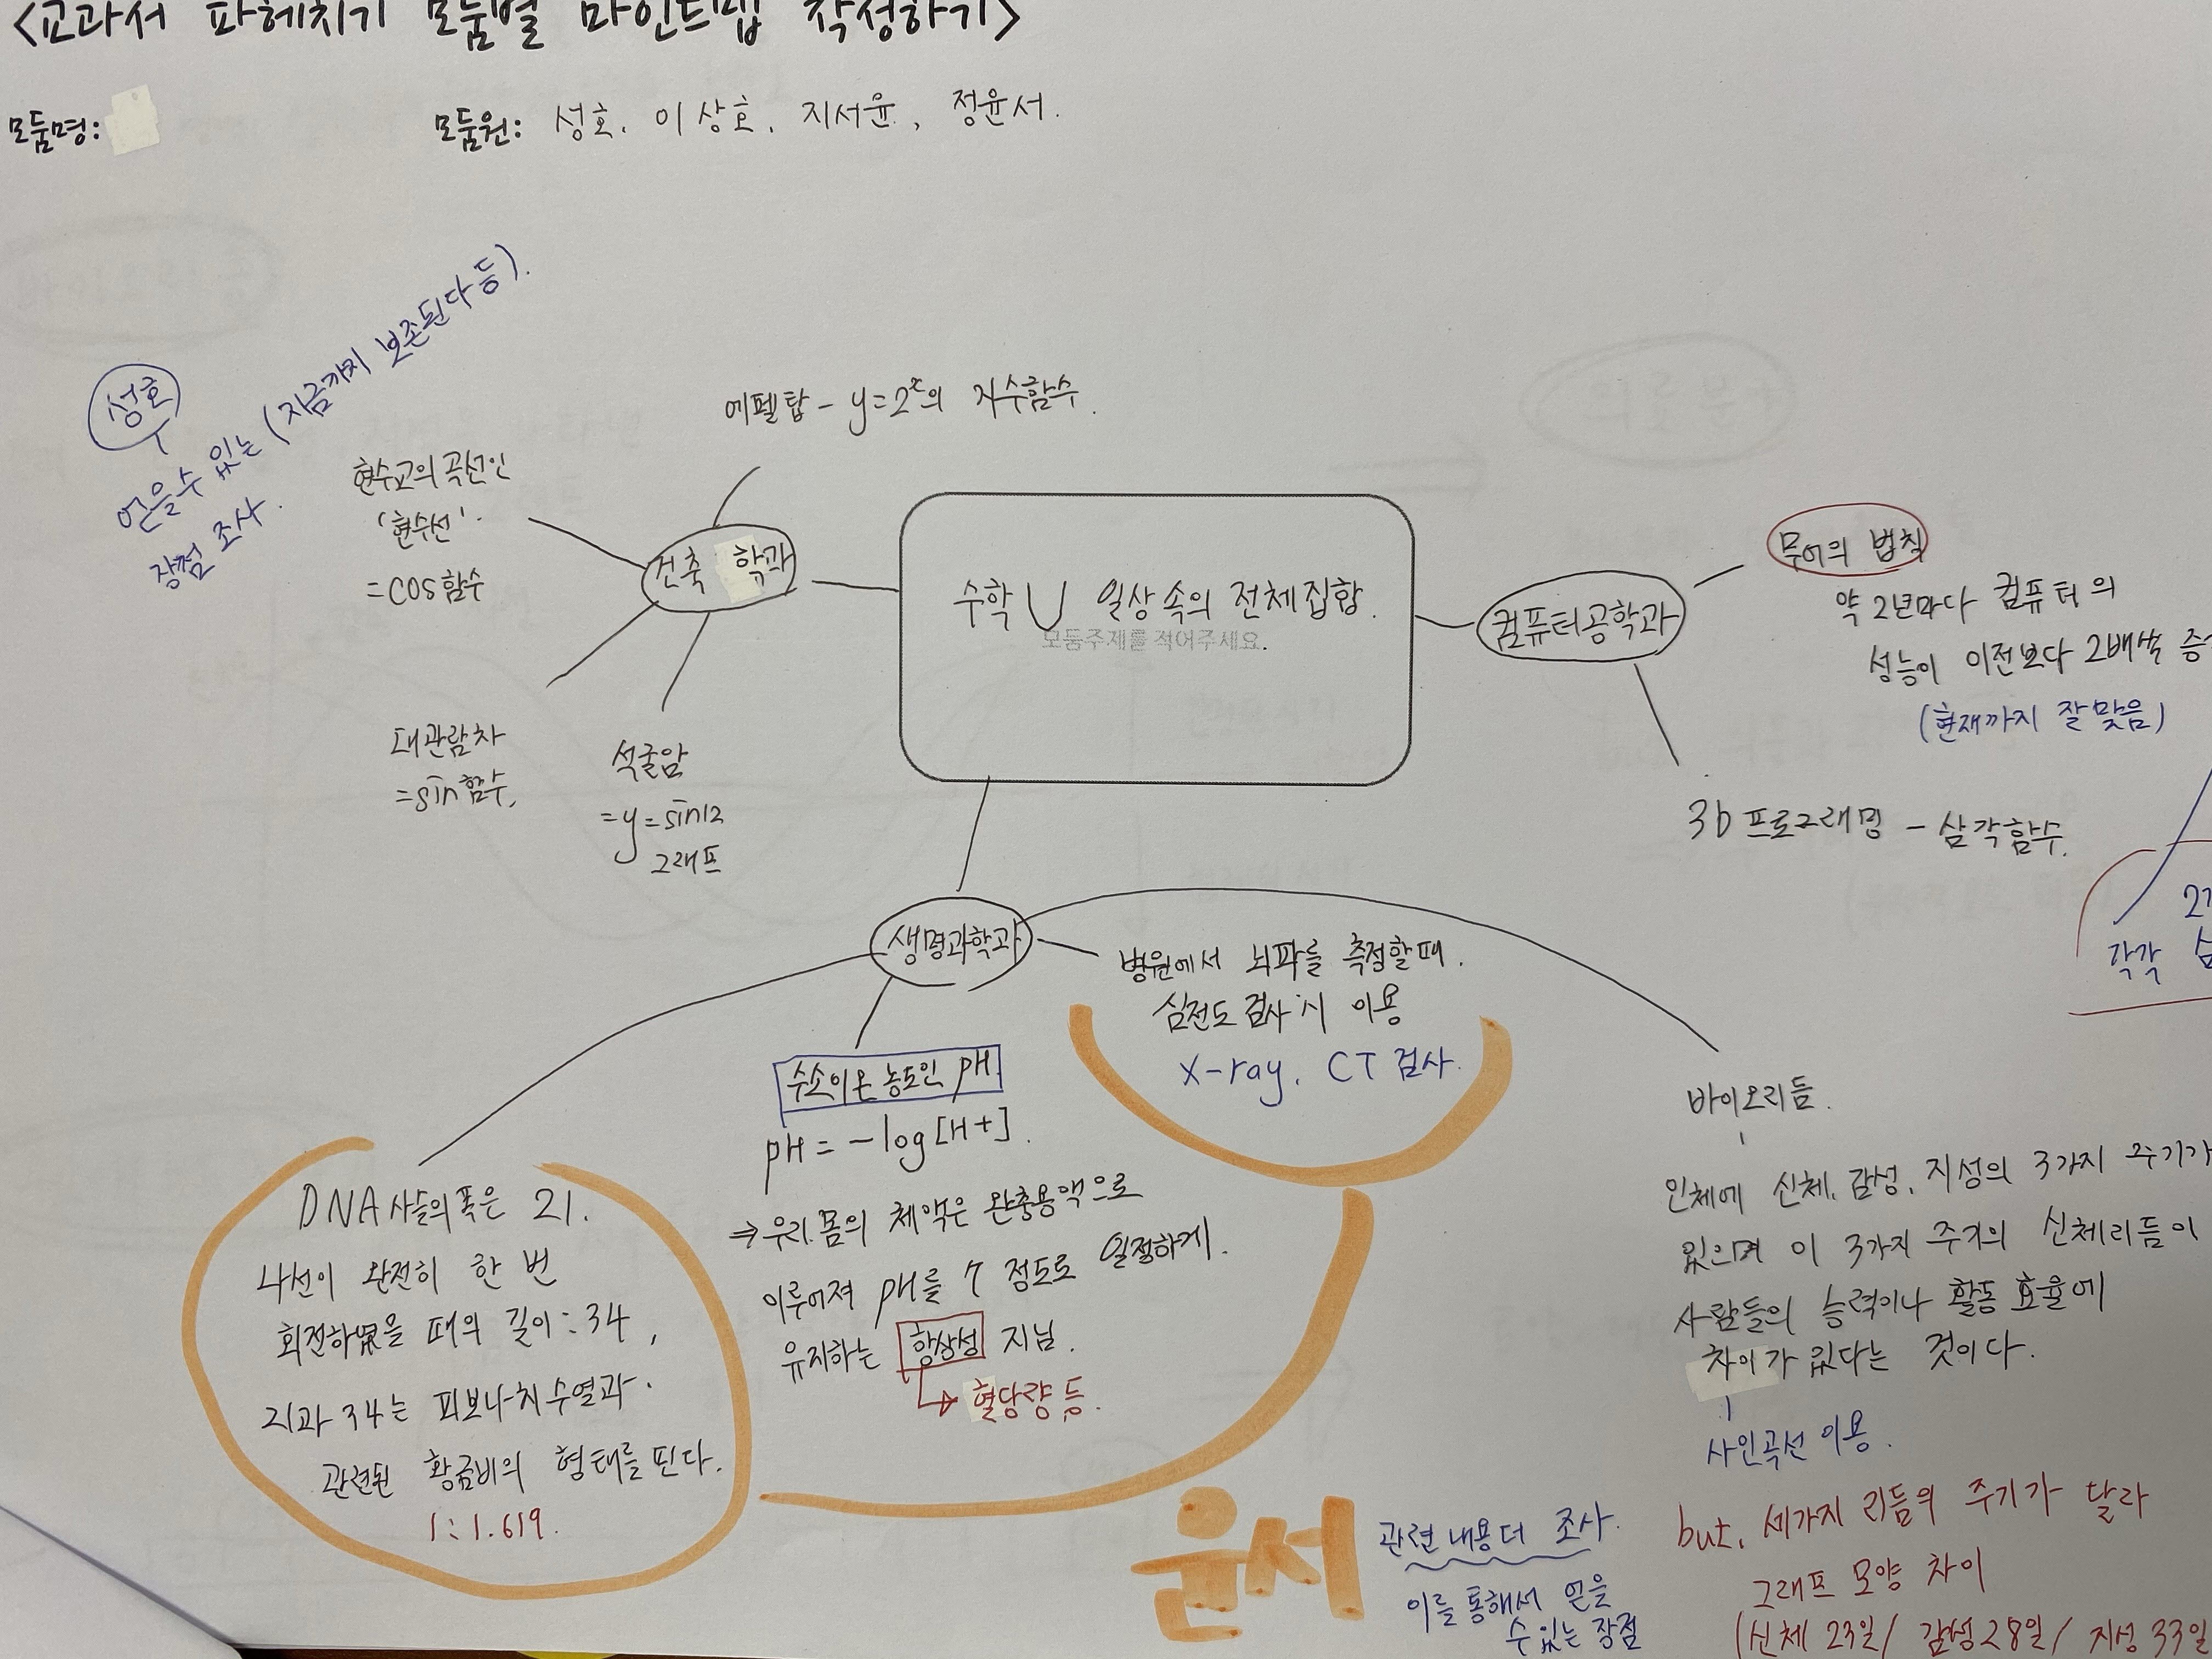 <교과서 파헤치기 모둠별 마인드맵 작성하기>
모둠명:
모둠원: 성호, 이상호, 지서윤, 정윤서.
성호
얻을수 있는 (지금까지 보존된다 등).
장점 조사.
에펠탑 - y=2ˣ의 지수함수.
현수교의 곡선인
'현수선'.
=cos함수
건축 학과
대관람차
=sin함수,
석굴암
=y=sin12
그래프
수학 ∪ 일상 속의 전체집합.
모둠주제를 적어주세요.
컴퓨터공학과
무어의 법칙
약 2년마다 컴퓨터의
성능이 이전보다 2배씩
(현재까지 잘 맞음)
3D 프로그래밍 - 삼각함수.
각각
생명과학과
병원에서 뇌파를 측정할 때.
심전도 검사 시 이용
X-ray, CT 검사.
수소이온 농도인 pH
pH = -log[H+].
⇒ 우리 몸의 체액은 완충용액으로
이루어져 pH를 7 정도로 일정하게.
유지하는 항상성 지님.
→ 혈당량 등.
DNA 사슬의 폭은 21.
나선이 완전히 한 번
회전하였을 때의 길이:34,
21과 34는 피보나치수열과.
관련된 황금비의 형태를 띤다.
1:1.619.
바이오리듬.
인체에 신체, 감성, 지성의 3가지 주기가
있으며 이 3가지 주기의 신체리듬이
사람들의 능력이나 활동 효율에
차이가 있다는 것이다.
사인곡선 이용.
but, 세가지 리듬의 주기가 달라
그래프 모양 차이
(신체 23일/ 감성 28일/ 지성 33일
윤서
관련 내용 더 조사.
이를 통해서 얻을
수 있는 장점